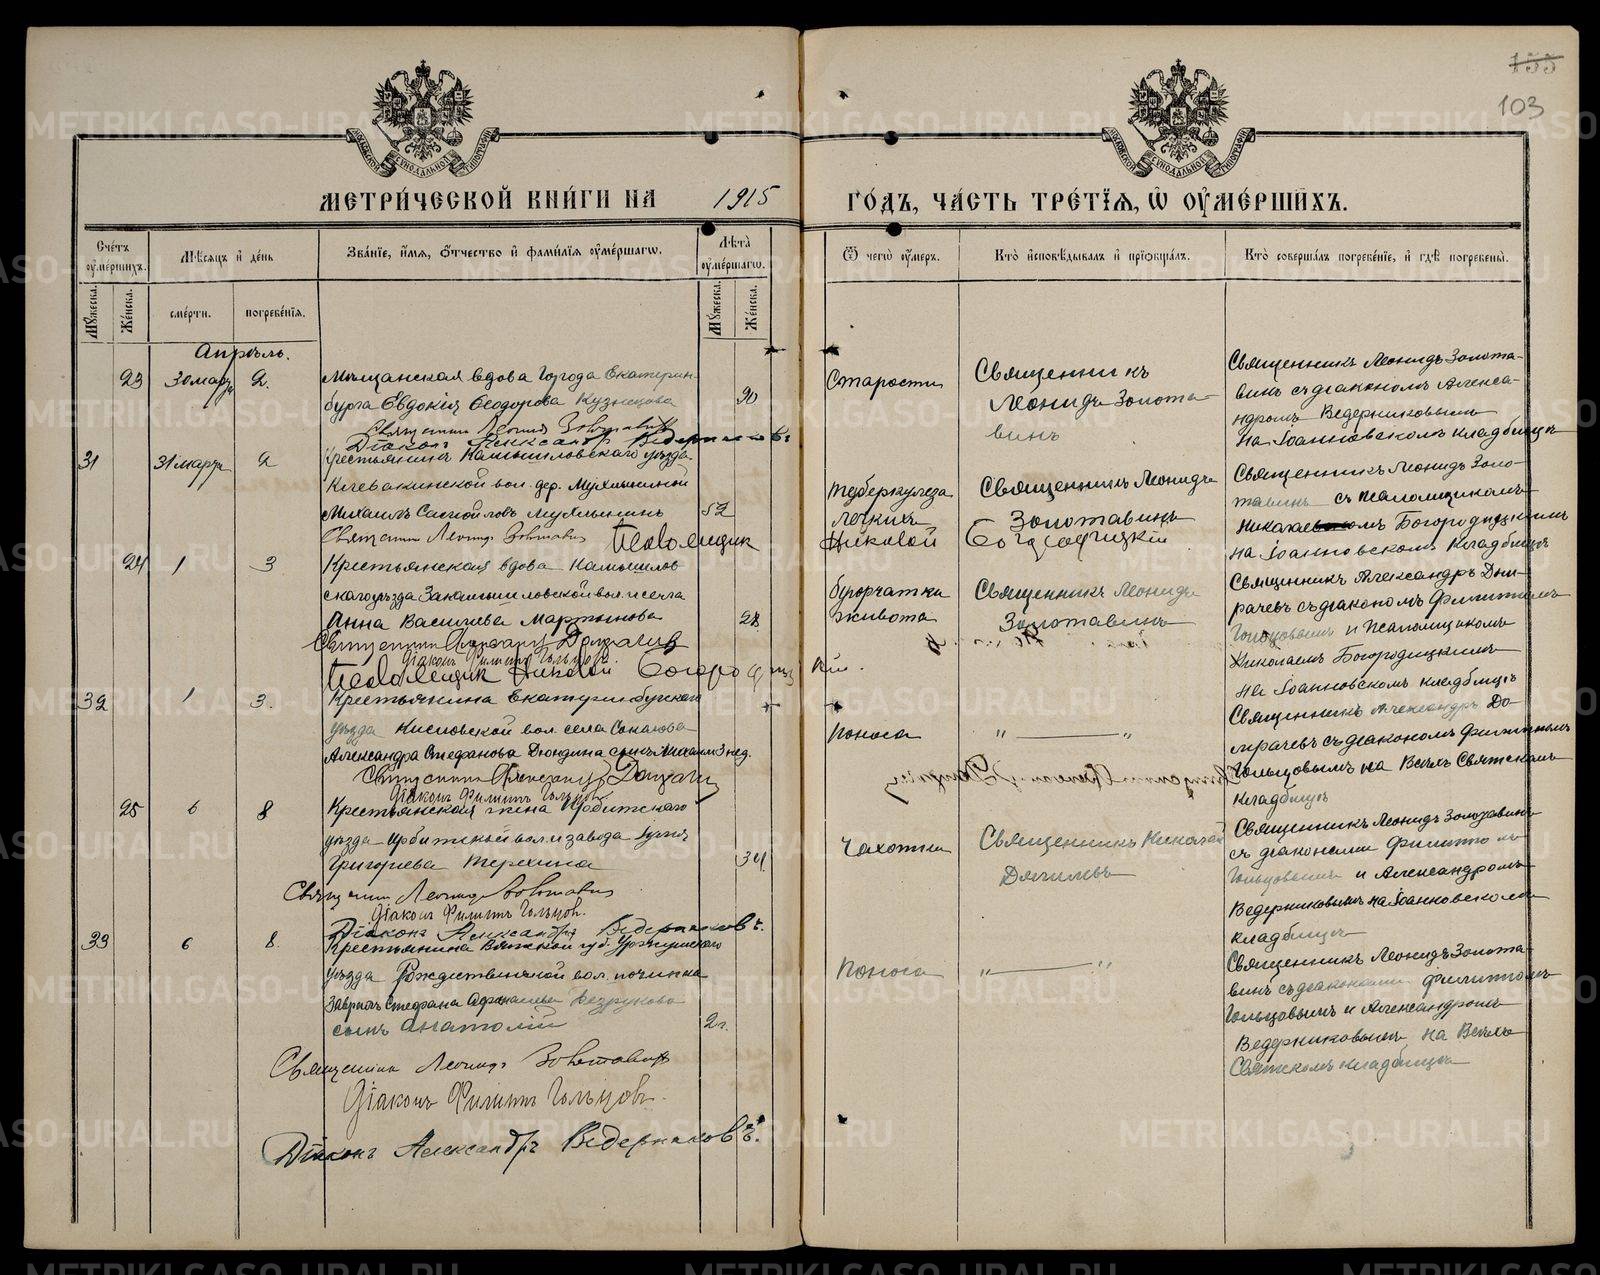 155
103
МЕТРИ́ЧЕСКОЙ КНИ́ГИ НА 1915 ГО́ДЪ, ЧА́СТЬ ТРЕ́ТІЯ, Ѡ ОУМЕ́РШИХЪ.
Сче́тъ оуме́ршихъ.
Мѣ́сяцъ и де́нь
Зва́ніе, и́мя, о́тчество и фами́лія оуме́ршагѡ.
Лѣ́та оуме́ршагѡ.
Ѿ чегѡ̀ оу́меръ.
Кто̀ исповѣ́дывалъ и пріобща́лъ.
Кто̀ соверша́лъ погребе́ніе, и гдѣ̀ погребены̀.
Му́жеска.
Же́нска.
сме́рти.
погребе́нія.
Му́жеска.
Же́нска.
Апрѣль.
23 30 марта 2.
Мѣщанская вдова города Екатерин-
бурга Евдокія Ѳеодорова Кузнецова
90
Священникъ Леонидъ Золотавинъ
Діаконъ Александръ Ведерниковъ
Старости
Священникъ
Леонидъ Золота-
винъ
Священникъ Леонидъ Золота-
винъ съ діакономъ Алекса-
ндромъ Ведерниковымъ
на Іоанновскомъ кладбищѣ
31 31 марта 2
Крестьянинъ Камышловскаго уѣзда
Клевакинской вол. дер. Мухлыниной
Михаилъ Мухлынинъ
52
Священникъ Леонидъ Золотавинъ Псаломщик Николай Богородицкій
туберкулеза
легкихъ
Священникъ Леонидъ
Золотавинъ
Священникъ Леонидъ Золо-
тавинъ съ псаломщикомъ
Николаемъ Богородицкимъ
на Іоанновскомъ кладбищѣ
24 1 3
Крестьянская вдова Камышлов
скаго уѣзда Закамышловской вол. и села
Анна Васильева Мартынова
28
Священникъ Александръ
Діаконъ Филиппъ Гольцовъ.
Псаломщик Николай Богородицкій.
бугорчатки
живота
Священникъ Леонидъ
Золотавинъ
Священникъ Александръ
съ діакономъ Филиппомъ
Гольцовымъ и псаломщикомъ
Николаемъ Богородицкимъ
на Іоанновскомъ кладбищѣ
32 1 3.
Крестьянина Екатеринбургскаго
уѣзда Кисловской вол. села
Александра Стефанова Дюндина сынъ Михаилъ 3 нед.
Священникъ Александръ
Діаконъ Филиппъ Гольцовъ
Поноса
" — "
Священникъ Александръ
съ діакономъ Филиппомъ
Гольцовымъ на Всѣхъ Святскомъ
кладбищѣ
25 6 8
Крестьянская жена Ирбитскаго
уѣзда Ирбитской вол. и завода
Григорьева Терехина
34
Священникъ Леонидъ Золотавинъ
Діаконъ Филиппъ Гольцовъ.
Діаконъ Александръ Ведерниковъ.
Чахотки
Священникъ Николай
Священникъ Леонидъ Золотавинъ
съ діаконами Филиппомъ
Гольцовымъ и Александромъ
Ведерниковымъ на Іоанновскомъ
кладбищѣ
33 6 8.
Крестьянина Вятской губ. Уржумскаго
уѣзда Рождественской вол. починка
Стефана Аѳанасьева Безрукова
сынъ Анатолій
2 г.
Священникъ Леонидъ Золотавинъ
Діаконъ Филиппъ Гольцовъ.
Діаконъ Александръ Ведерниковъ.
Поноса
" — "
Священникъ Леонидъ Золота-
винъ съ діаконами Филиппомъ
Гольцовымъ и Александромъ
Ведерниковымъ на Всѣхъ
Святскомъ кладбищѣ
METRIKI.GASO-URAL.RU